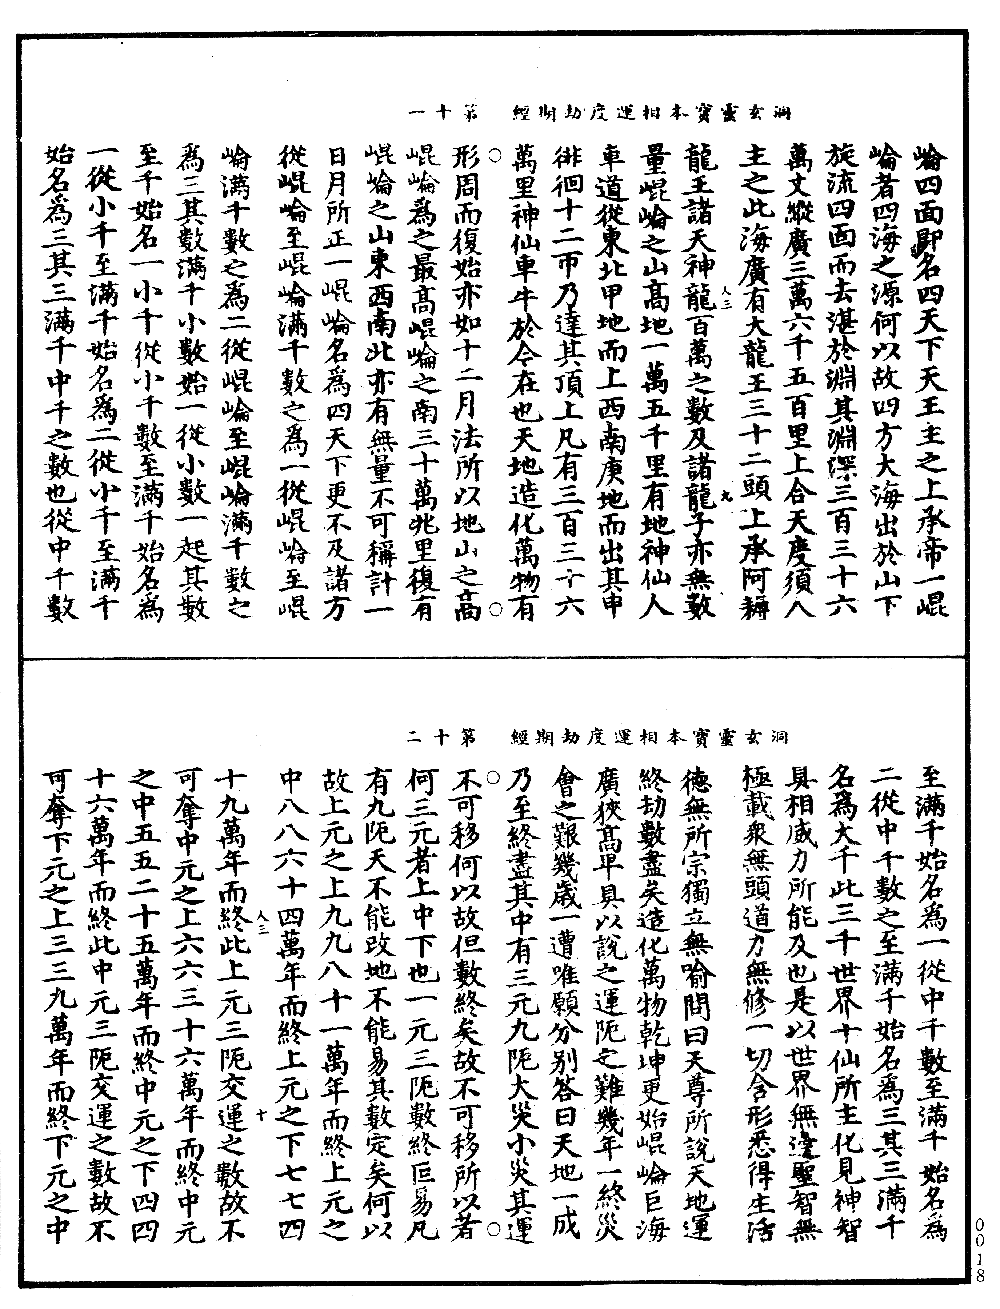 洞玄靈寶本相運度劫期經　第十一
崘四面即名四天下天王主之上承帝一崐
崘者四海之源何以故四方大海出於山下
旋流四面而去湛於淵其淵深三百三十六
萬丈縱廣三萬六千五百里上合天度須八
主之此海廣有大龍王三十二頭上承阿耨
龍王諸天神龍百萬之數及諸龍子亦無數
量崐崘之山高地一萬五千里有地神仙人
車道從東北甲地而上西南庚地而出其中
徘徊十二帀乃達其頂上凡有三百三十六
萬里神仙車牛於今在也天地造化萬物有
形周而復始亦如十二月法所以地山之高
崐崘爲之最高崐崘之南三十萬兆里復有
崐崘之山東西南北亦有無量不可稱計一
日月所正一崐崘名爲四天下更不及諸方
從崐崘至崐崘滿千數之爲一從崐崘至崐
崘滿千數之爲二從崐崘至崐崘滿千數之
爲三其數滿千小數始一從小數一起其數
至千始名一小千從小千數至滿千始名爲
一從小千至滿千始名爲二從小千至滿千
始名爲三其三滿千中千之數也從中千數
人三
九
洞玄靈寶本相運度劫期經　第十二
至滿千始名爲一從中千數至滿千始名爲
二從中千數之至滿千始名爲三其三滿千
名爲大千此三千世界十仙所主化見神智
具相威力所能及也是以世界無邊聖智無
極載衆無頭道力無修一切含形悉得生活
德無所宗獨立無喻問曰天尊所說天地運
終劫數盡矣造化萬物乾坤更始崐崘巨海
廣狹高卑具以說之運阨之難幾年一終災
會之艱幾歲一遭唯願分別荅曰天地一成
乃至終盡其中有三元九阨大災小災其運
不可移何以故但數終矣故不可移所以者
何三元者上中下也一元三阨數終叵易凡
有九阨天不能改地不能易其數定矣何以
故上元之上九九八十一萬年而終上元之
中八八六十四萬年而終上元之下七七四
十九萬年而終此上元三阨交運之數故不
可奪中元之上六六三十六萬年而終中元
之中五五二十五萬年而終中元之下四四
十六萬年而終此中元三阨交運之數故不
可奪下元之上三三九萬年而終下元之中
人三
十
0018